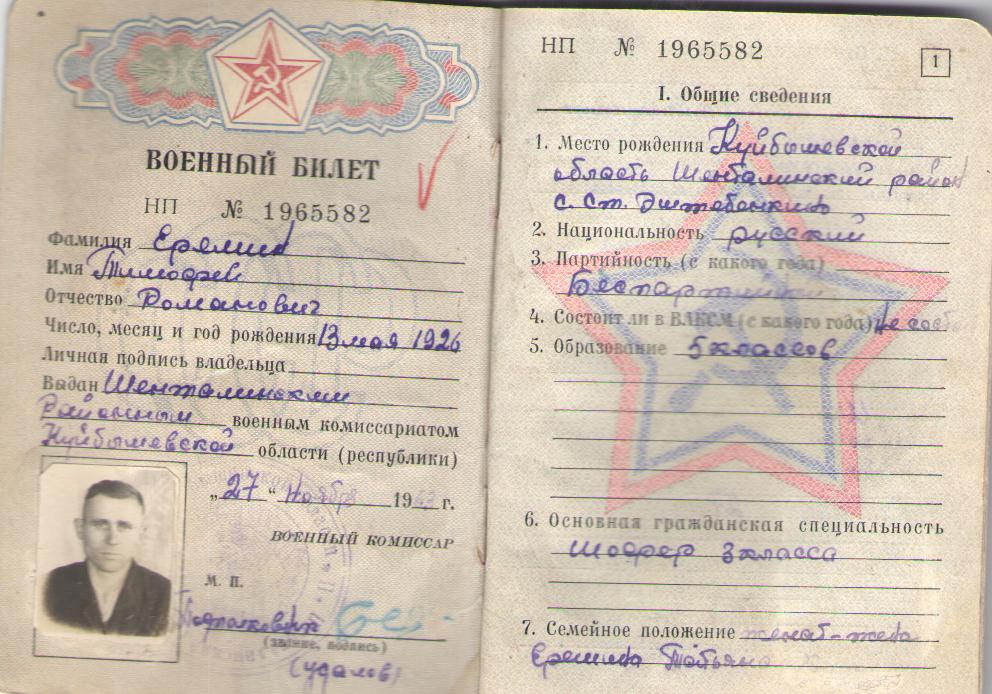 ВОЕННЫЙ БИЛЕТ
НП № 1965582
Фамилия Еремин
Имя Тимофей
Отчество Романович
Число, месяц и год рождения 13 мая 1926
Личная подпись владельца
Выдан Шенталинским
Районным военным комиссариатом
Куйбышевской области (республики)
„27“ Ноября 19 г.
ВОЕННЫЙ КОМИССАР
М. П.
Подполковник
(звание, подпись)
(Удалов)
НП № 1965582
1
I. Общие сведения
1. Место рождения Куйбышевской
область Шенталинский район
с. Ст.
2. Национальность русский
3. Партийность (с какого года)
Беспартийный
4. Состоит ли в ВЛКСМ (с какого года) не сост
5. Образование 5 классов
6. Основная гражданская специальность
Шофер 3 класса
7. Семейное положение женат - жена
Еремина Татьяна